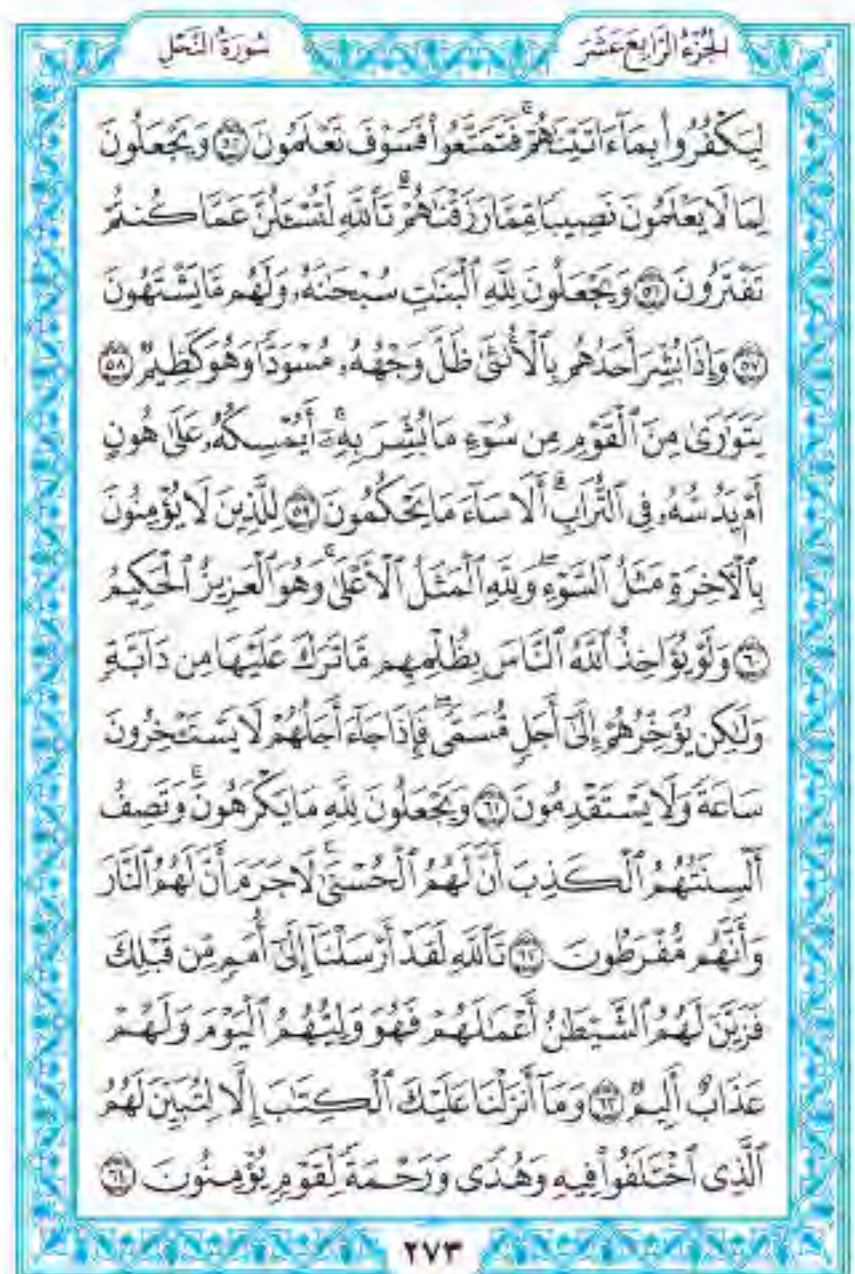 الجُزْءُ الرَّابِعَ عَشَرَ
سُورَةُ النَّحْلِ
لِيَكْفُرُوا۟ بِمَآ ءَاتَيْنَـٰهُمْ ۚ فَتَمَتَّعُوا۟ فَسَوْفَ تَعْلَمُونَ ٥٥ وَيَجْعَلُونَ
لِمَا لَا يَعْلَمُونَ نَصِيبًا مِّمَّا رَزَقْنَـٰهُمْ ۗ تَٱللَّهِ لَتُسْـَٔلُنَّ عَمَّا كُنتُمْ
تَفْتَرُونَ ٥٦ وَيَجْعَلُونَ لِلَّهِ ٱلْبَنَـٰتِ سُبْحَـٰنَهُۥ وَلَهُم مَّا يَشْتَهُونَ
٥٧ وَإِذَا بُشِّرَ أَحَدُهُم بِٱلْأُنثَىٰ ظَلَّ وَجْهُهُۥ مُسْوَدًّا وَهُوَ كَظِيمٌ ٥٨
يَتَوَٰرَىٰ مِنَ ٱلْقَوْمِ مِن سُوٓءِ مَا بُشِّرَ بِهِۦٓ ۚ أَيُمْسِكُهُۥ عَلَىٰ هُونٍ
أَمْ يَدُسُّهُۥ فِى ٱلتُّرَابِ ۗ أَلَا سَآءَ مَا يَحْكُمُونَ ٥٩ لِلَّذِينَ لَا يُؤْمِنُونَ
بِٱلْـَٔاخِرَةِ مَثَلُ ٱلسَّوْءِ ۖ وَلِلَّهِ ٱلْمَثَلُ ٱلْأَعْلَىٰ ۚ وَهُوَ ٱلْعَزِيزُ ٱلْحَكِيمُ
٦٠ وَلَوْ يُؤَاخِذُ ٱللَّهُ ٱلنَّاسَ بِظُلْمِهِم مَّا تَرَكَ عَلَيْهَا مِن دَآبَّةٍ
وَلَـٰكِن يُؤَخِّرُهُمْ إِلَىٰٓ أَجَلٍ مُّسَمًّى ۖ فَإِذَا جَآءَ أَجَلُهُمْ لَا يَسْتَـْٔخِرُونَ
سَاعَةً وَلَا يَسْتَقْدِمُونَ ٦١ وَيَجْعَلُونَ لِلَّهِ مَا يَكْرَهُونَ ۚ وَتَصِفُ
أَلْسِنَتُهُمُ ٱلْكَذِبَ أَنَّ لَهُمُ ٱلْحُسْنَىٰ ۖ لَا جَرَمَ أَنَّ لَهُمُ ٱلنَّارَ
وَأَنَّهُم مُّفْرَطُونَ ٦٢ تَٱللَّهِ لَقَدْ أَرْسَلْنَآ إِلَىٰٓ أُمَمٍ مِّن قَبْلِكَ
فَزَيَّنَ لَهُمُ ٱلشَّيْطَـٰنُ أَعْمَـٰلَهُمْ فَهُوَ وَلِيُّهُمُ ٱلْيَوْمَ وَلَهُمْ
عَذَابٌ أَلِيمٌ ٦٣ وَمَآ أَنزَلْنَا عَلَيْكَ ٱلْكِتَـٰبَ إِلَّا لِتُبَيِّنَ لَهُمُ
ٱلَّذِى ٱخْتَلَفُوا۟ فِيهِ ۙ وَهُدًى وَرَحْمَةً لِّقَوْمٍ يُؤْمِنُونَ ٦٤
٢٧٣